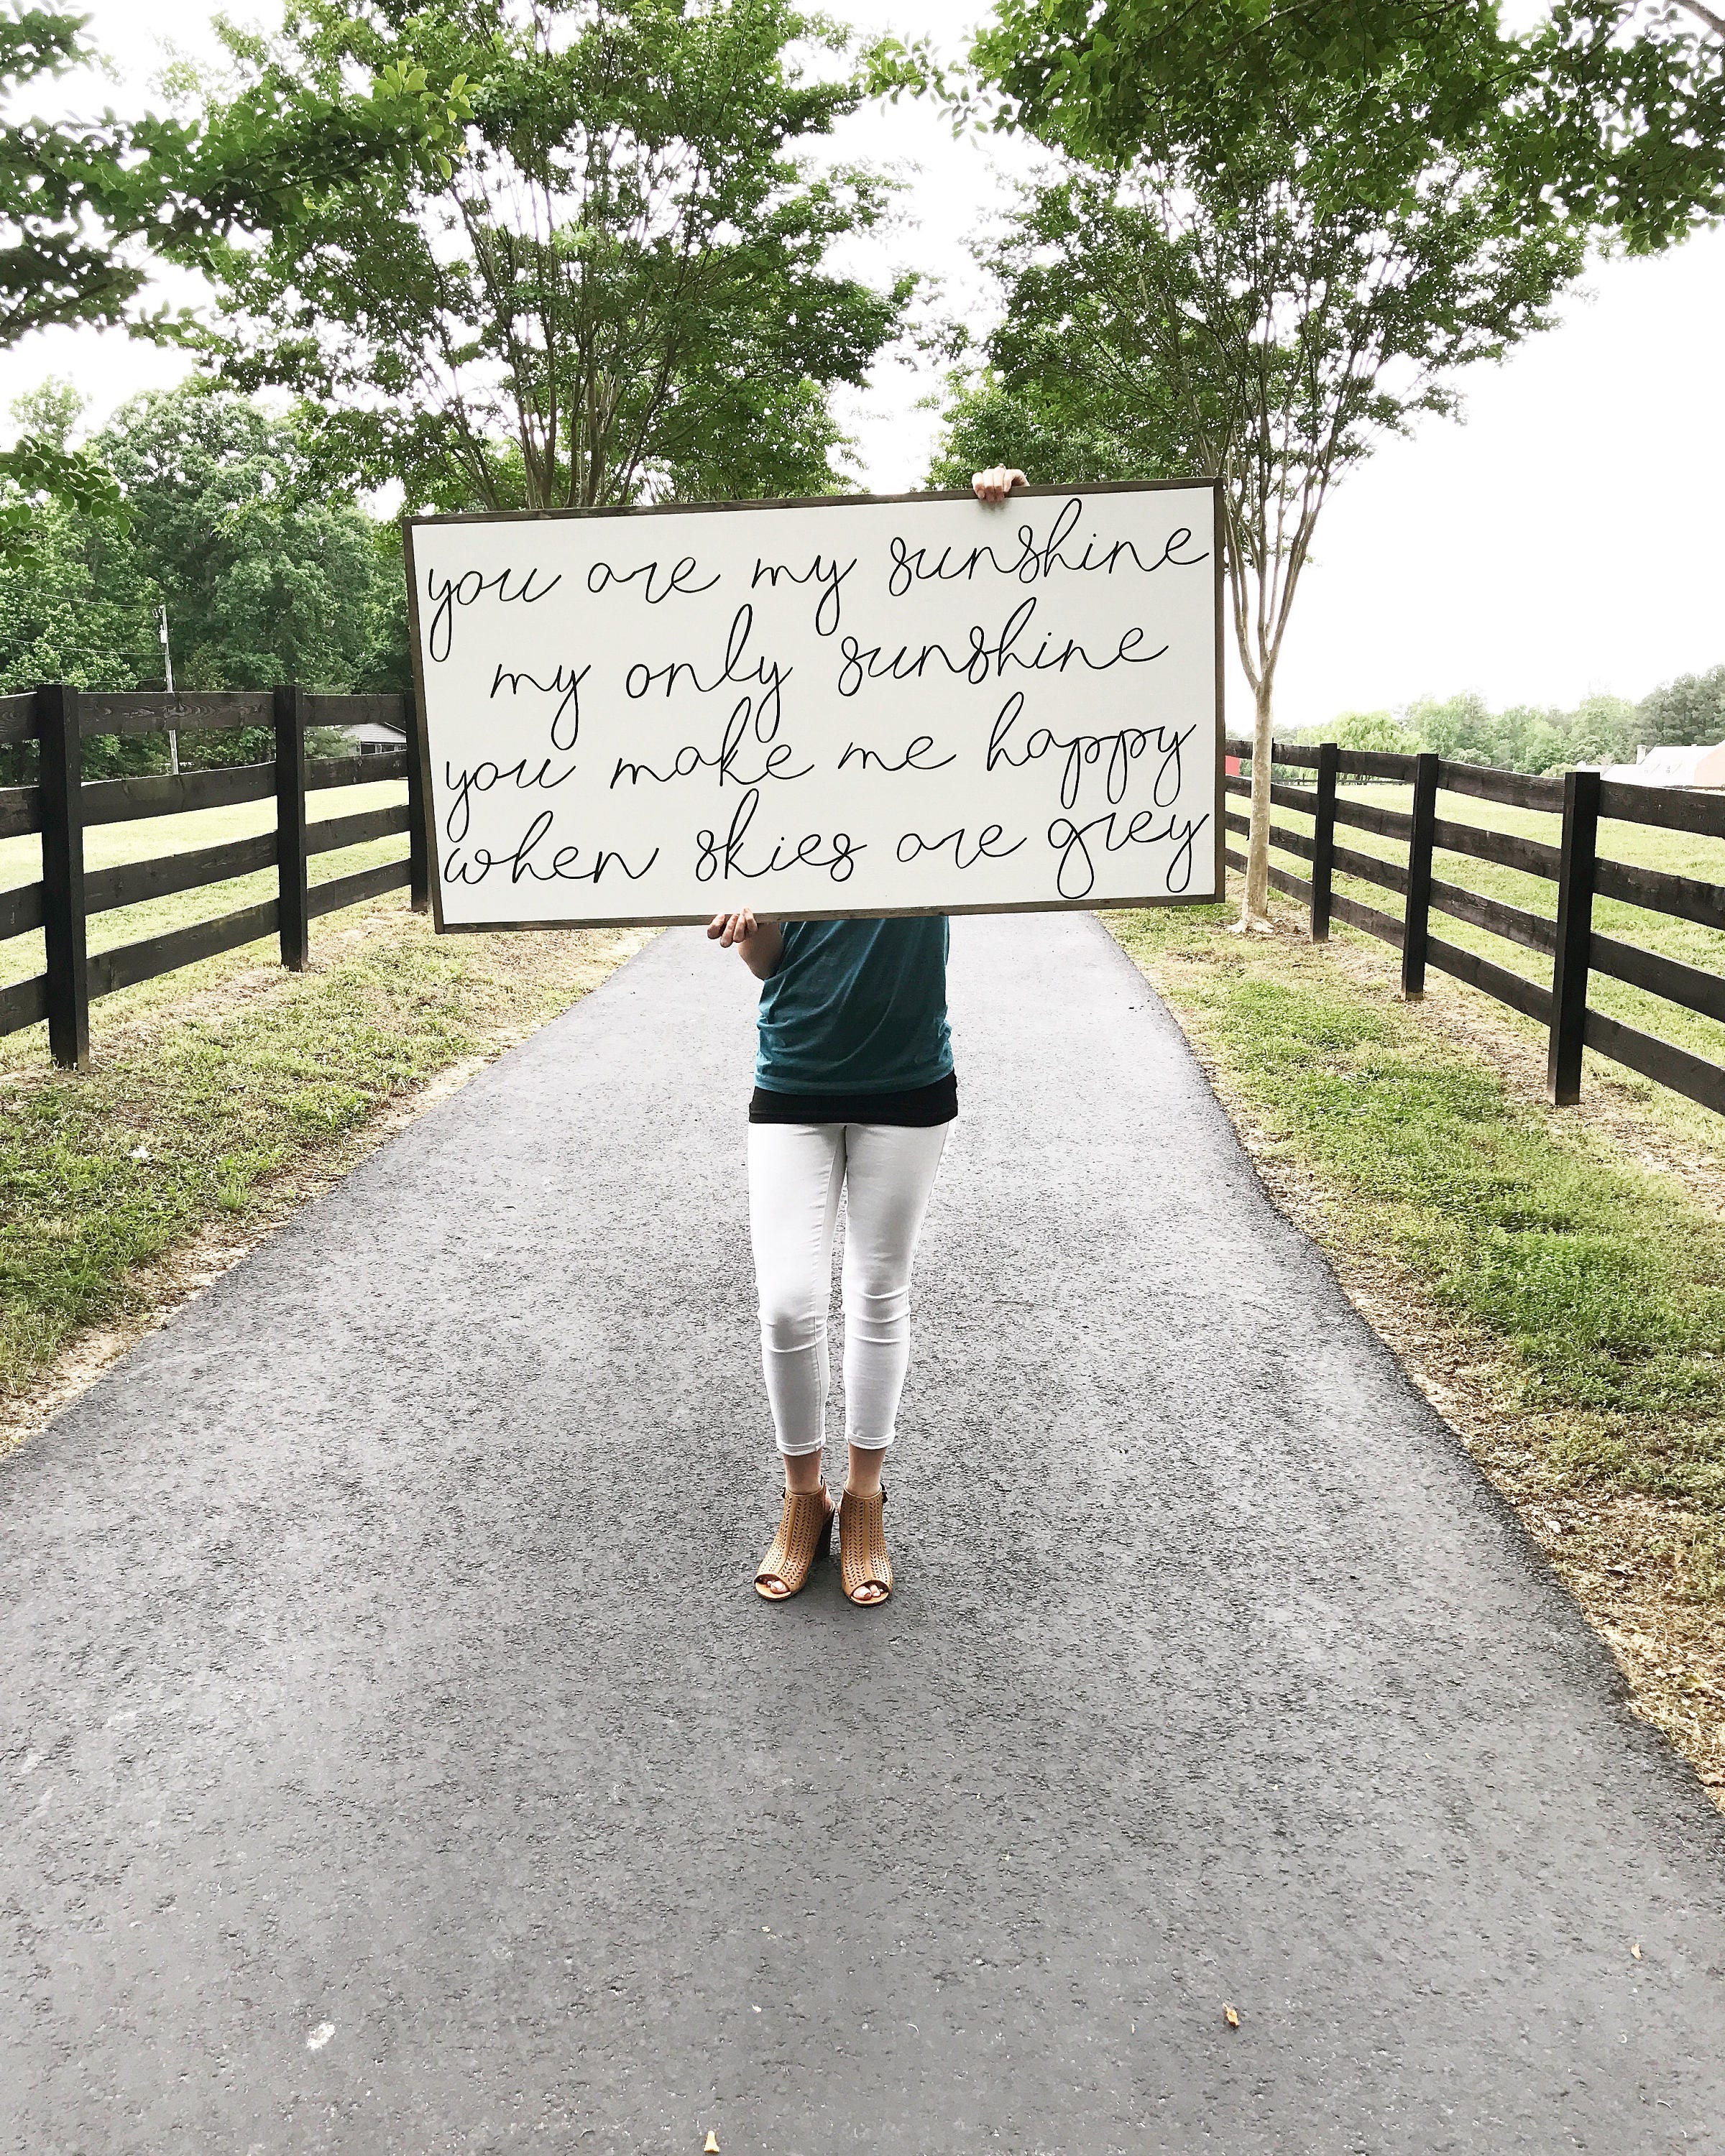 you are my sunshine
my only sunshine
you make me happy
when skies are grey